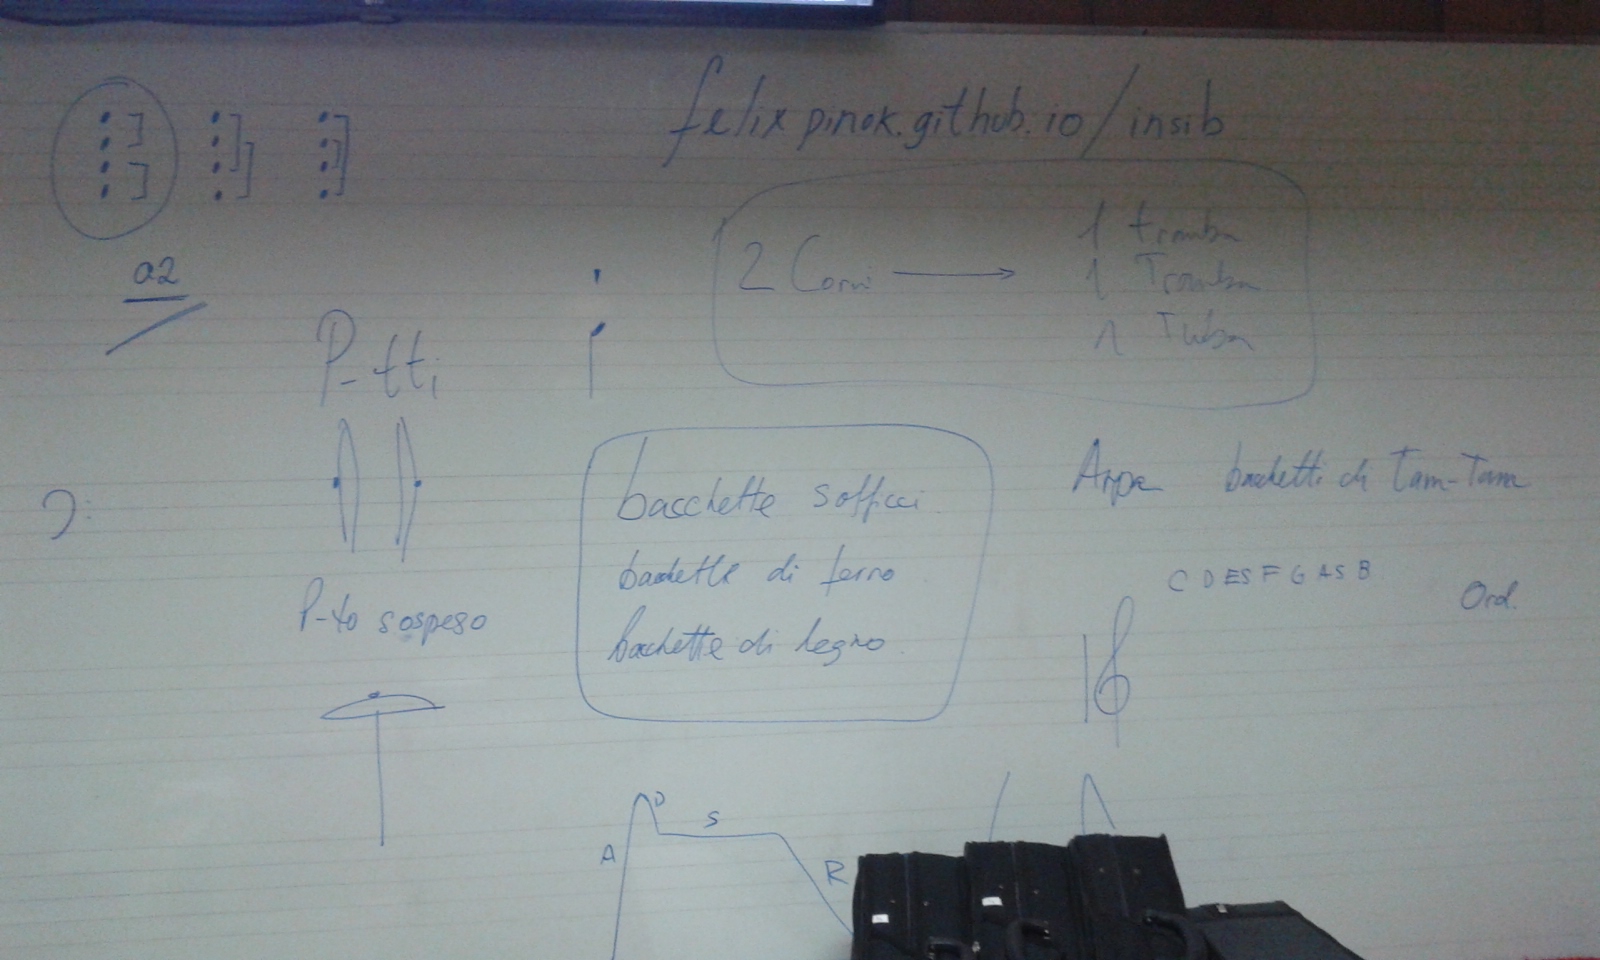 felixpinok.github.io/insib
a2
2 Corni
1 tromba
1 Tromba
1 Tuba
P-tti
bacchette soffici
bacchette di ferro
bacchette di legno
Arpa bachetti di Tam-Tam
C D ES F G AS B
Ord.
P-to sospeso
A D S R